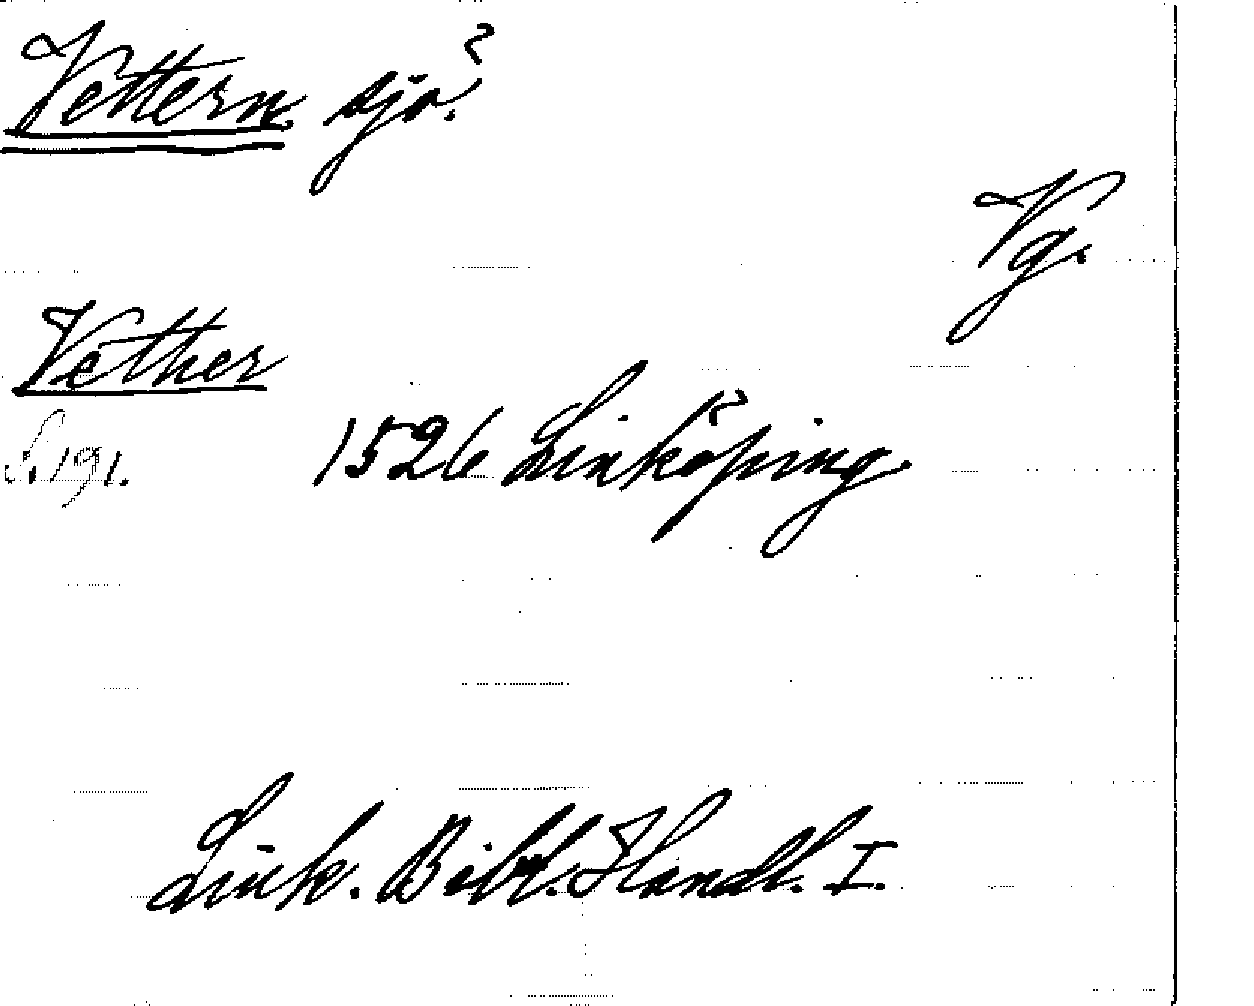 Vettern. sjö.
Vg.
Vether
S. 191. 1526 Linköping.
Link. Bibl. Handl. I.